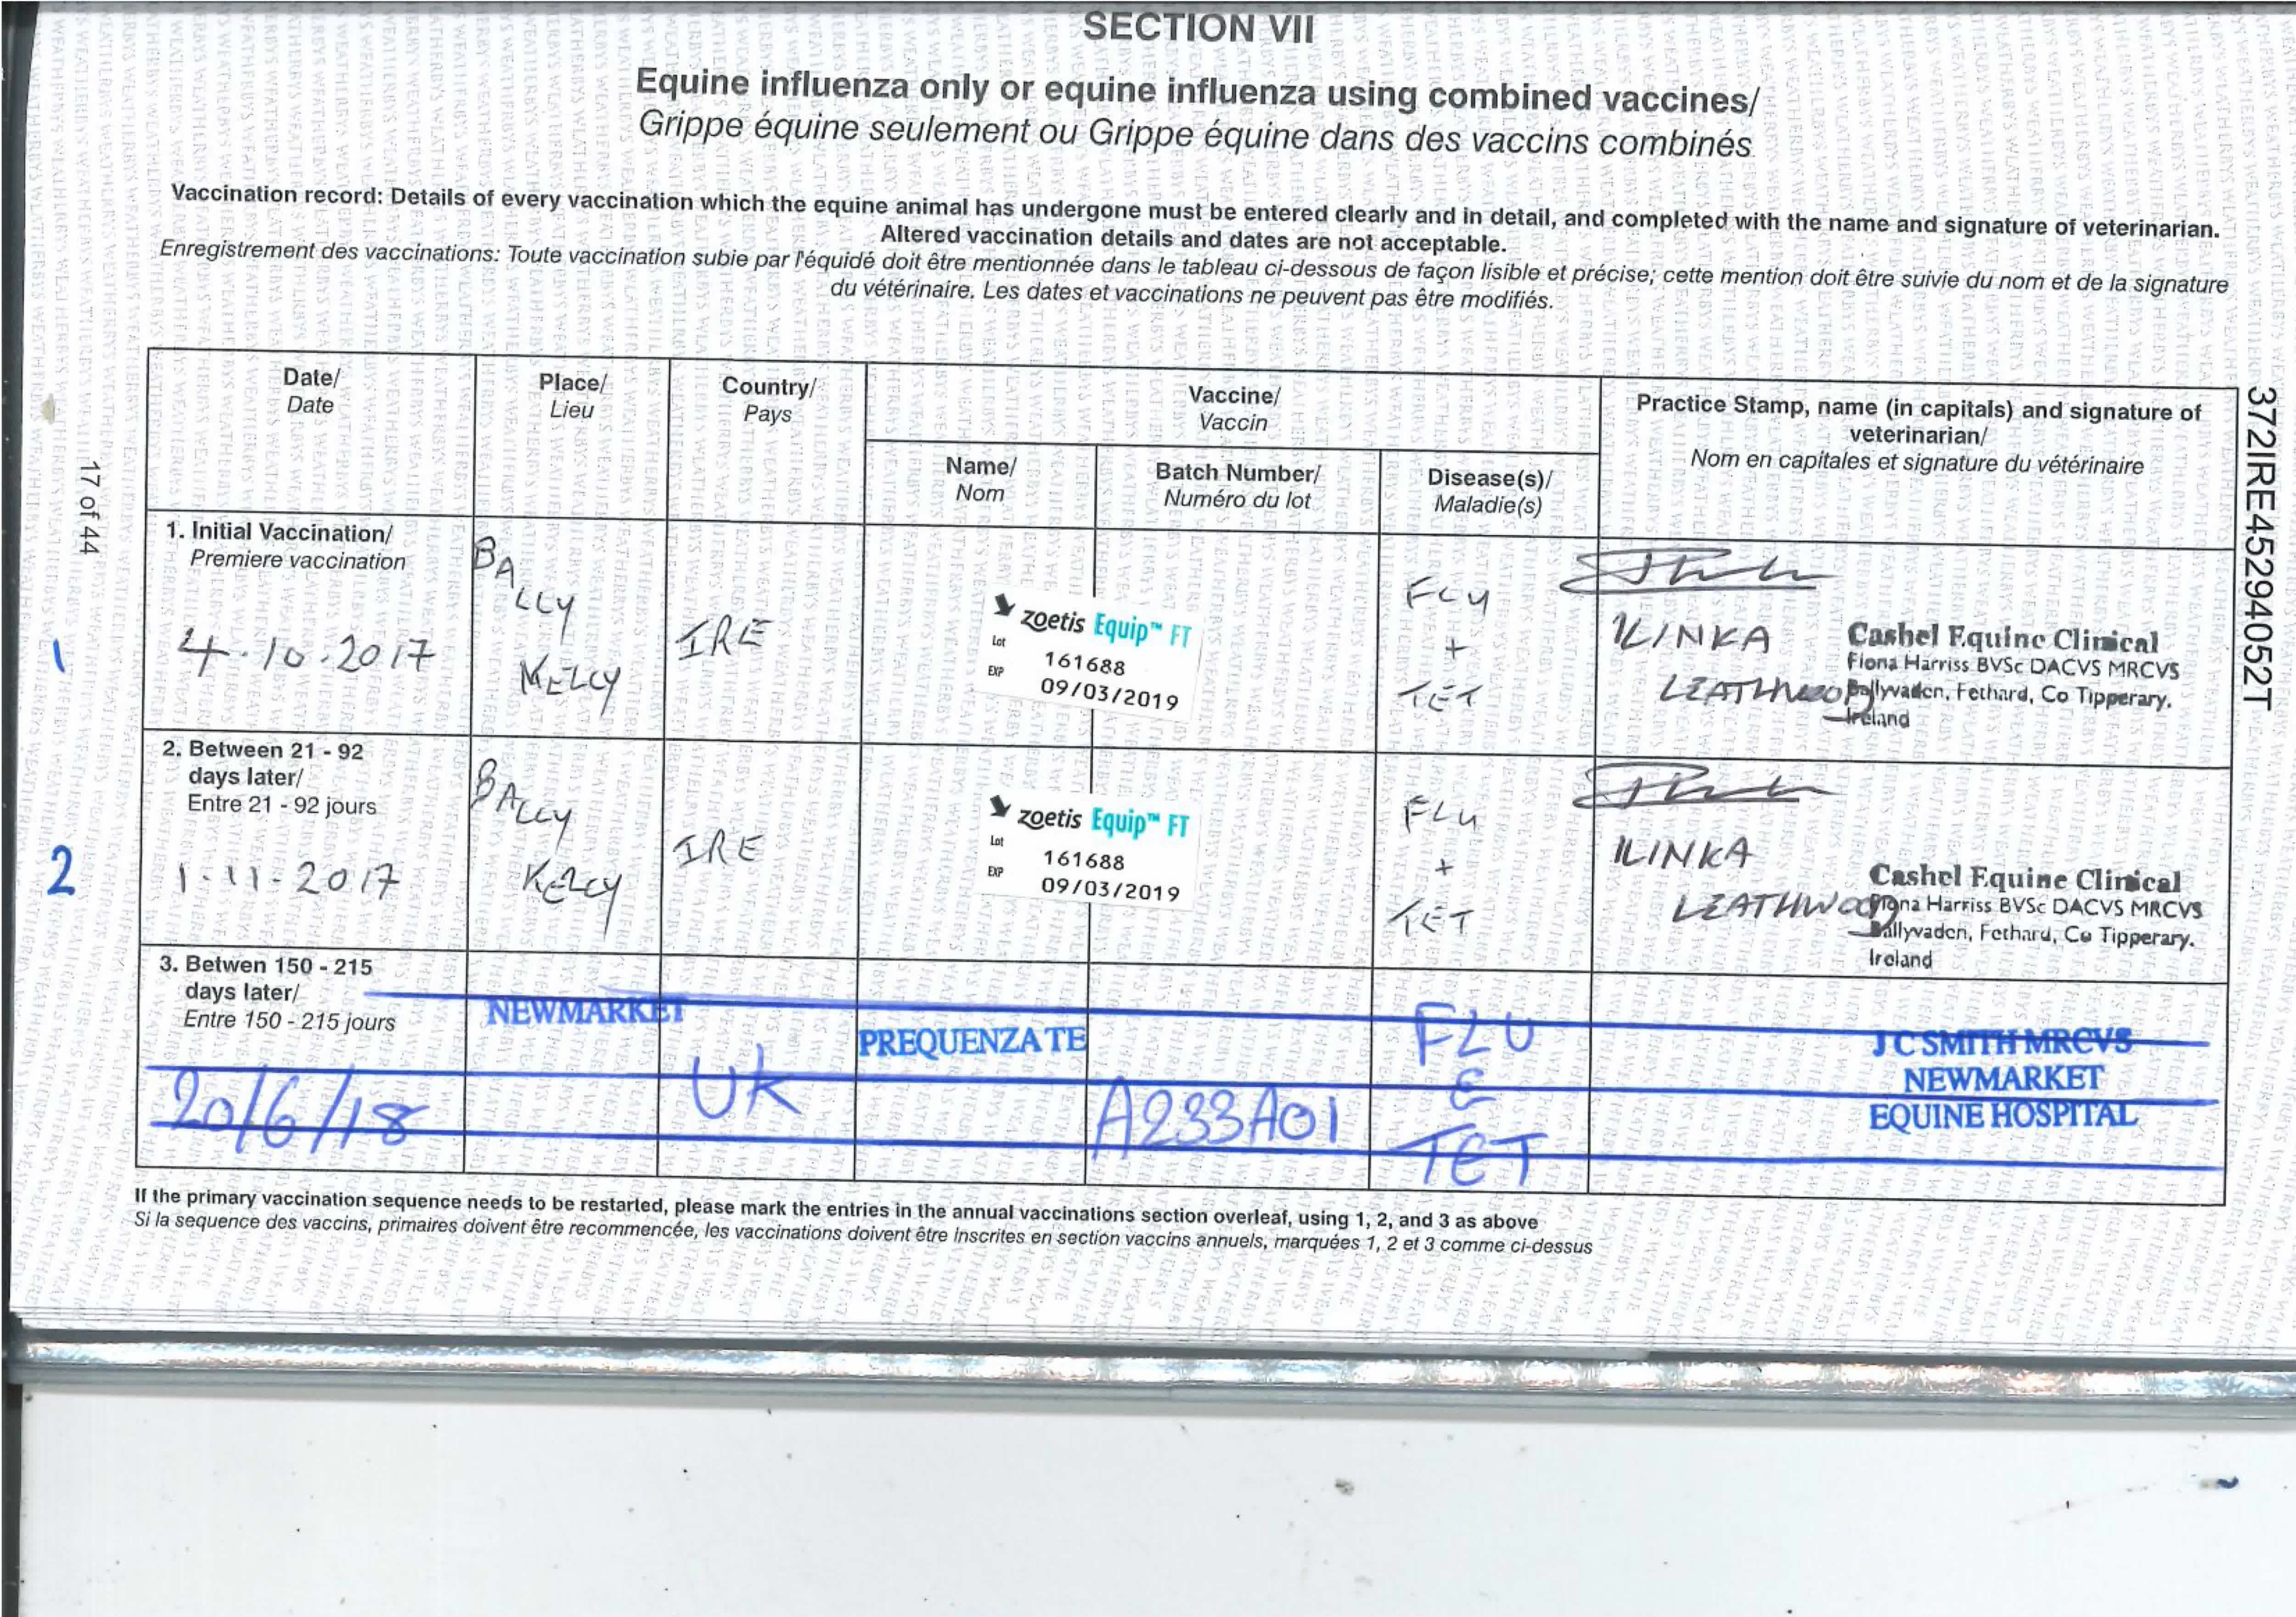 SECTION VII
Equine influenza only or equine influenza using combined vaccines/
Grippe équine seulement ou Grippe équine dans des vaccins combinés
Vaccination record: Details of every vaccination which the equine animal has undergone must be entered clearly and in detail, and completed with the name and signature of veterinarian.
Altered vaccination details and dates are not acceptable.
Enregistrement des vaccinations: Toute vaccination subie par l'équidé doit être mentionnée dans le tableau ci-dessous de façon lisible et précise; cette mention doit être suivie du nom et de la signature
du vétérinaire. Les dates et vaccinations ne peuvent pas être modifiés.
Date/
Date
Place/
Lieu
Country/
Pays
Vaccine/
Vaccin
Name/
Nom
Batch Number/
Numéro du lot
Disease(s)/
Maladie(s)
Practice Stamp, name (in capitals) and signature of
veterinarian/
Nom en capitales et signature du vétérinaire
17 of 44
372IRE45294052T
1
1. Initial Vaccination/
Premiere vaccination
4.10.2017
BALLY
KELLY
IRE
zoetis Equip™ FT
Lot 161688
EXP 09/03/2019
FLU
+
TET
ILINKA
LEATHWOOD
Cashel Equine Clinical
Fiona Harriss BVSc DACVS MRCVS
Ballyvaden, Fethard, Co Tipperary.
Ireland
2
2. Between 21 - 92
days later/
Entre 21 - 92 jours
1.11.2017
BALLY
KELLY
IRE
zoetis Equip™ FT
Lot 161688
EXP 09/03/2019
FLU
+
TET
ILINKA
LEATHWOOD
Cashel Equine Clinical
Fiona Harriss BVSc DACVS MRCVS
Ballyvaden, Fethard, Co Tipperary.
Ireland
3. Betwen 150 - 215
days later/
Entre 150 - 215 jours
20/6/18
NEWMARKET
UK
PREQUENZA TE
A233A01
FLU
&
TET
J C SMITH MRCVS
NEWMARKET
EQUINE HOSPITAL
If the primary vaccination sequence needs to be restarted, please mark the entries in the annual vaccinations section overleaf, using 1, 2, and 3 as above
Si la sequence des vaccins, primaires doivent être recommencée, les vaccinations doivent être inscrites en section vaccins annuels, marquées 1, 2 et 3 comme ci-dessus